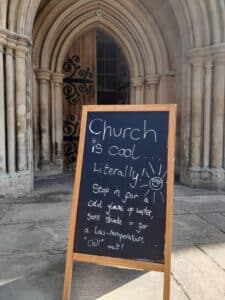 Church
is cool...
Literally!
Stop in for a
cold glass of water,
some shade or for
a low-temperature
"chill" out!